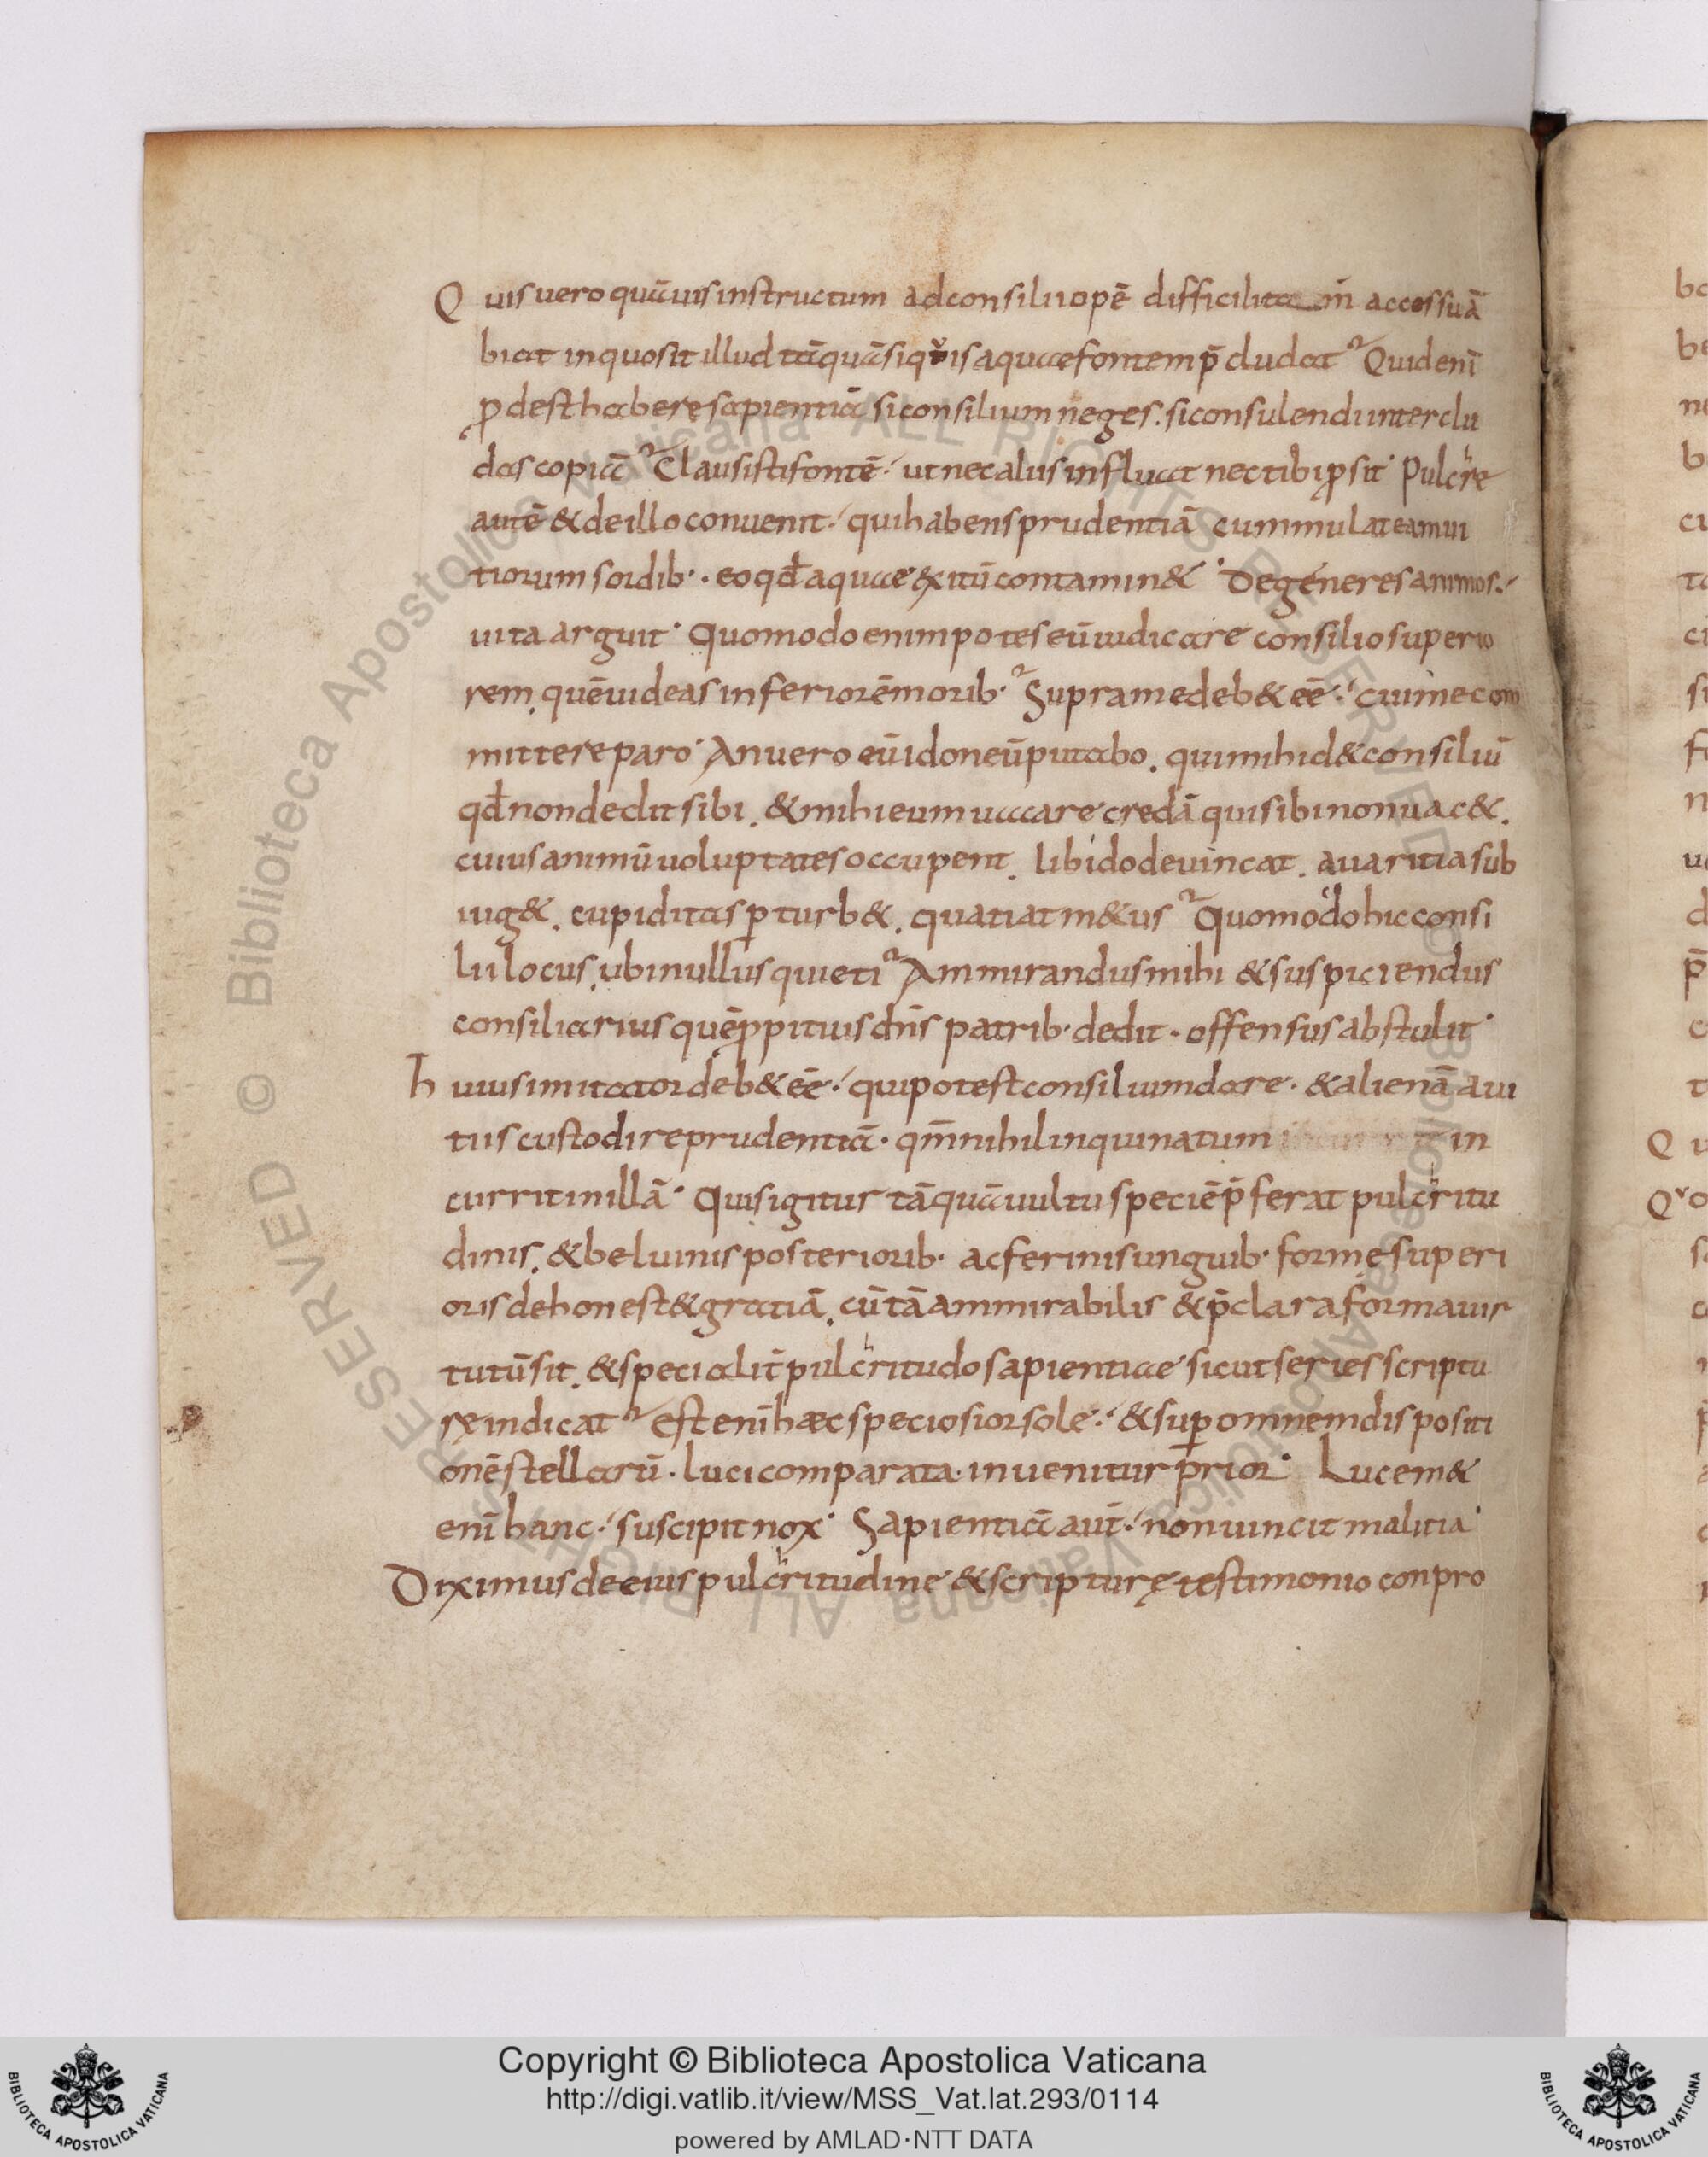 Quis uero quāuis instructum ad consilii opē difficili accessu ā
biat in quo sit illud tāquā si quis aquae fontem p̄cludat Quid eni̅
ꝓdest habere sapientiā si consilium neges. si consulendi interclu
das copiā Clausisti fontē ut nec aliis influat nec tibi ꝓsit Pulchre
autē & de illo conuenit qui habens prudentiā cummulat eam ui
tiorum sordib· eo qđ aquae exitū contamin& Degeneres animos
uita arguit Quomodo enim potes eū iudicare consilio superio
rem, quē uideas inferiorē morib· Supra me deb& eē cui me com
mittere paro An uero eū idoneū putabo, qui mihi d& consiliū
qđ non dedit sibi, & mihi eum uacare credā qui sibi non uac&,
cuius animū uoluptates occupent, libido deuincat, auaritia sub
iug&, cupiditas ꝑturb&, quatiat m&us Quomodo hic consi
lii locus, ubi nullus quieti Ammirandus mihi & suspiciendus
consiliarius quē ꝓpitius dn̄s patrib· dedit· offensus abstulit
huius imitator deb& eē qui potest consilium dare· & alienā a ui
tiis custodire prudentiā· qm̄ nihil inquinatum in
currit in illā Quis igitur tāquā uultu speciē p̄ferat pulchritu
dinis, & beluinis posteriorib· ac ferinis unguib· formę superi
oris dehonest& gratiā, cū tā ammirabilis & p̄clara forma uir
tutū sit, & specialit̄ pulchritudo sapientiae sicut series scriptu
rę indicat Est eni̅ haec speciosior sole & suꝑ omnem dispositi
onē stellarū· luci comparata· inuenitur prior Lucem &
eni̅ hanc suscipit nox Sapientiā aut̄ non uincit malitia
Diximus de eius pulchritudine & scripturę testimonio con pro
© Biblioteca Apostolica Vaticana ALL RIGHTS RESERVED
Copyright © Biblioteca Apostolica Vaticana
http://digi.vatlib.it/view/MSS_Vat.lat.293/0114
powered by AMLAD·NTT DATA
BIBLIOTECA APOSTOLICA VATICANA
BIBLIOTECA APOSTOLICA VATICANA